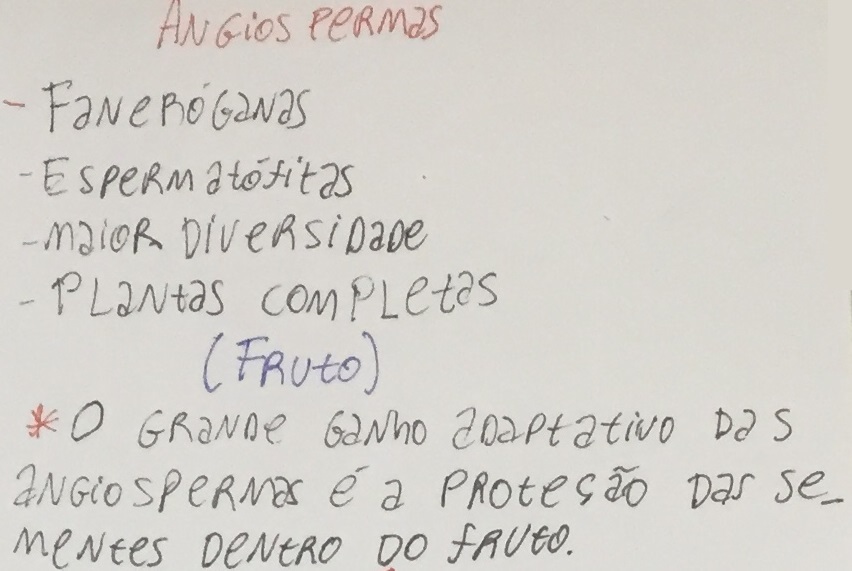 ANGiosPERMAS
- FANERÓGANAS
- ESPERMATÓFITAS
- MAIOR DIVERSIDADE
- PLANTAS COMPLETAS
(FRUTO)
* O GRANDE GANHO ADAPTATIVO DAS
ANGIOSPERMAS É A PROTEÇÃO DAS SE_
MENTES DENTRO DO FRUTO.